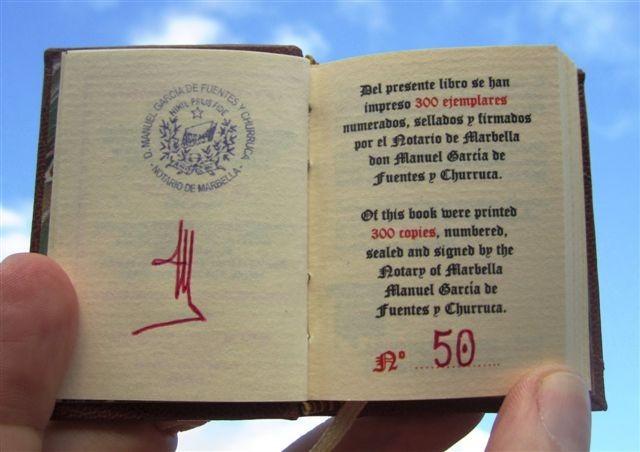 D. MANUEL GARCÍA DE FUENTES Y CHURRUCA
NIHIL PRIUS FIDE
· NOTARIO DE MARBELLA ·
Del presente libro se han
impreso 300 ejemplares
numerados, sellados y firmados
por el Notario de Marbella
don Manuel García de
Fuentes y Churruca.
Of this book were printed
300 copies, numbered,
sealed and signed by the
Notary of Marbella
Manuel García de
Fuentes y Churruca.
Nº 50